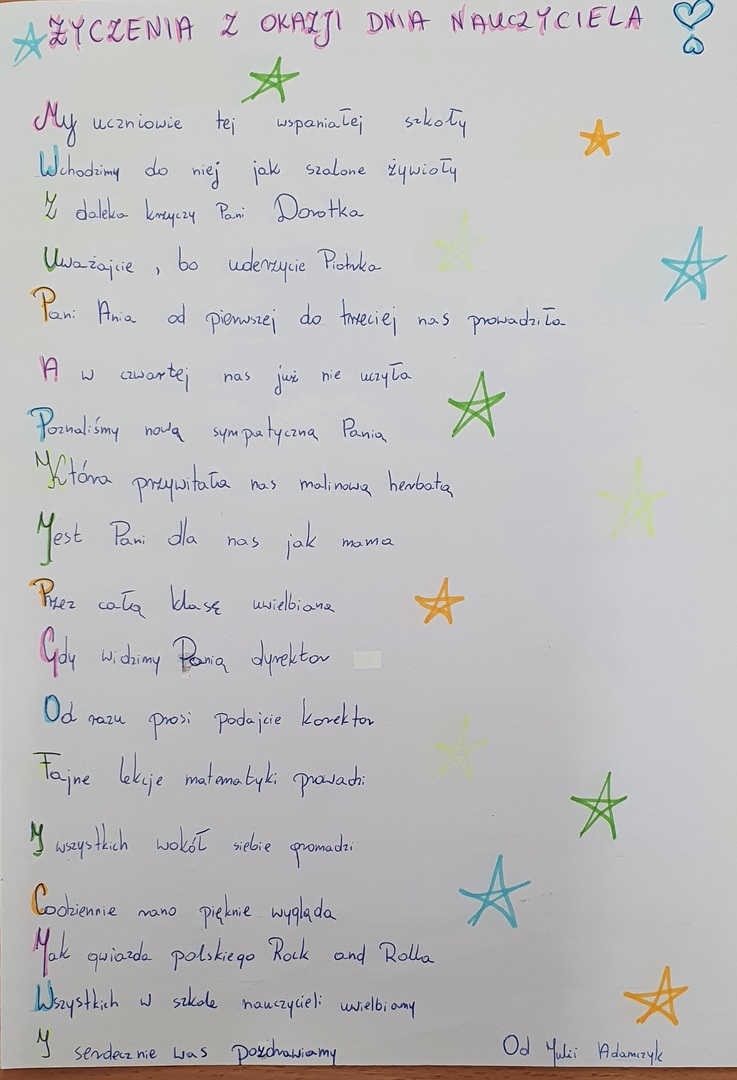 ŻYCZENIA Z OKAZJI DNIA NAUCZYCIELA
My uczniowie tej wspaniałej szkoły
Wchodzimy do niej jak szalone żywioły
Z daleka krzyczy Pani Dorotka
Uważajcie, bo uderzycie Piotrka
Pani Ania od pierwszej do trzeciej nas prowadziła
A w czwartej nas już nie uczyła
Poznaliśmy nową sympatyczną Panią
Która przywitała nas malinową herbatą
Jest Pani dla nas jak mama
Przez całą klasę uwielbiana
Gdy widzimy Panią dyrektor
Od razu prosi podajcie korektor
Fajne lekcje matematyki prowadzi
I wszystkich wokół siebie gromadzi
Codziennie rano pięknie wygląda
Jak gwiazda polskiego Rock and Rolla
Wszystkich w szkole nauczycieli uwielbiamy
I serdecznie was pozdrawiamy
Od Julii Adamczyk